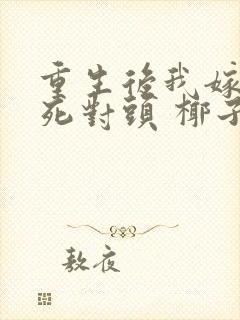 重生後我嫁
死對頭 椰子
敖夜